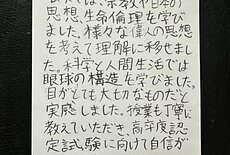 は、宗教や日本の
思想、生命倫理を学び
ました。様々な偉人の思想
を考えて理解に移せまし
た。科学と人間生活では
眼球の構造を学びました。
目がとても大切なものだと
実感しました。授業も丁寧に
教えていただき、高卒度認
定試験に向けて自信が